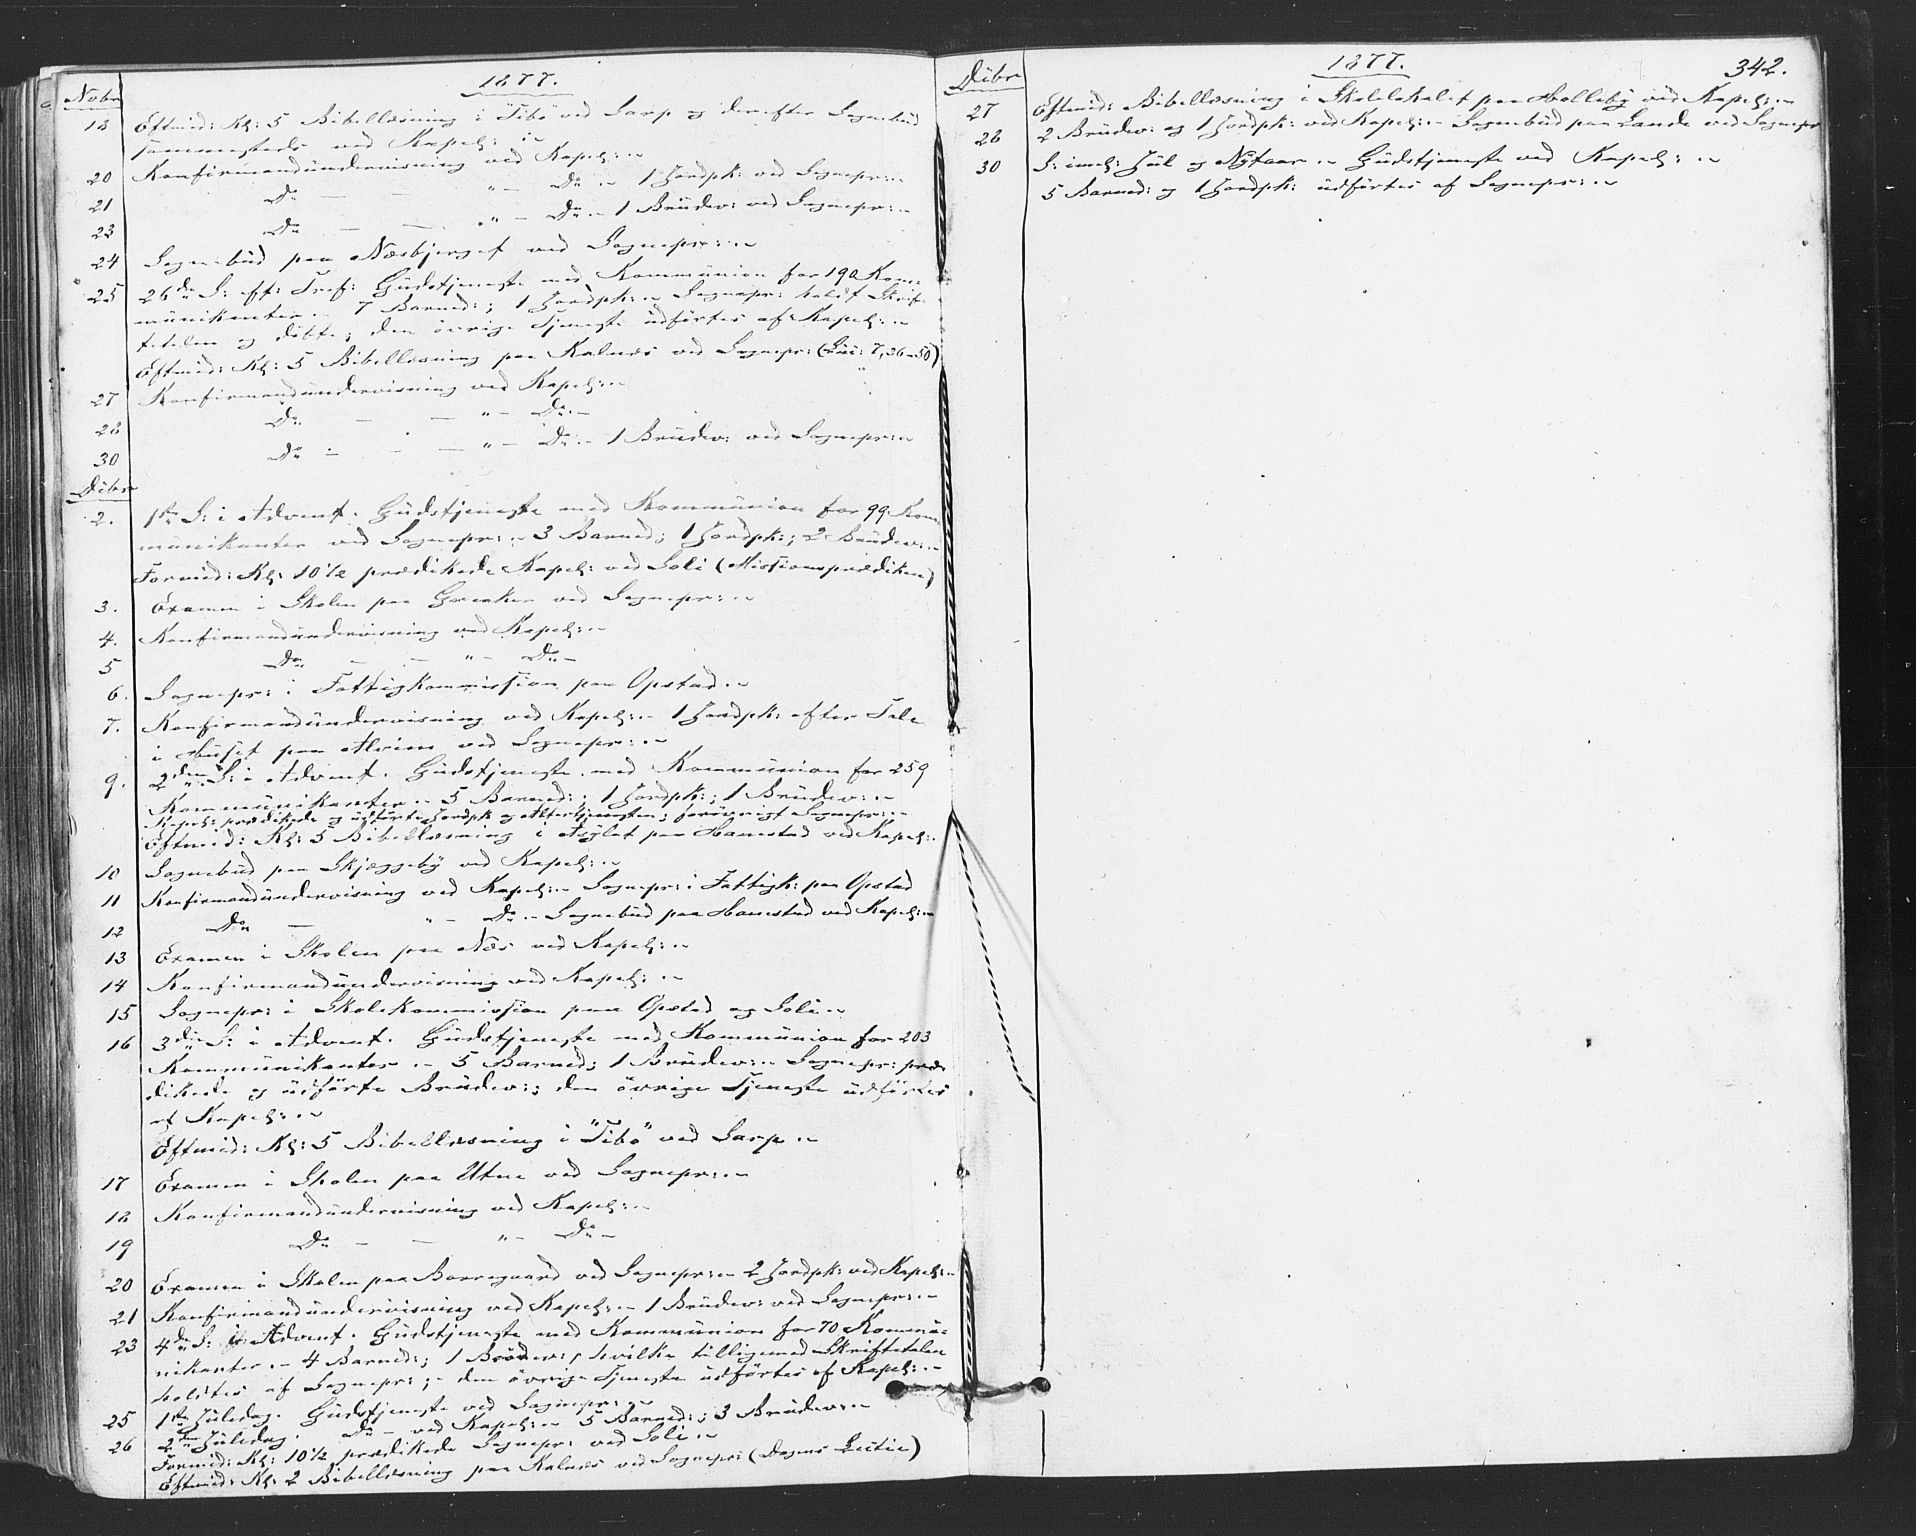 1877.
Novbr
18 Eftmid: Kl: 5 Bibellæsning i "Tibo" ved Sarp og derefter Sognebud
sammesteds ved Kapel:
20 Konfirmandundervisning ved Kapel:
21 Do — " — Do 1 Jordpk: ved Sognepr:
23 Do — — " — Do 1 Brudev: ved Sognepr:
24 Sognebud paa Næsbjerget ved Sognepr:
25 26de S: eft: Tref: Gudstjeneste med Kommunion for 190 Kom-
munikanter. 7 Barned:; 1 Jordpk: Sognepr: holdt Skrif-
tetalen og døbte; den øvrige Tjeneste udførtes af Kapel:
Eftmid: Kl: 5 Bibellæsning paa Kalnæs ved Sognepr: (Luc: 7, 36-50)
27 Konfirmandundervisning ved Kapel:
28 Do — — " — Do
30 Do — — " — Do 1 Brudev: ved Sognepr:
Dcbr
2. 1ste S: i Advent. Gudstjeneste med Kommunion for 99 Kom-
munikanter ved Sognepr: 3 Barned; 1 Jordpk:; 2 Brudev:
Formid: Kl: 10 1/2 prædikede Kapel: ved Soli (Missionsprædiken)
3. Examen i Skolen paa Greaker ved Sognepr:
4. Konfirmandundervisning ved Kapel:
5 Do — — " — Do
6. Sognepr: i Fattigkommission paa Opstad.
7. Konfirmandundervisning ved Kapel: 1 Jordpk: efter Tale
i Huset paa Alvim ved Sognepr:
9. 2den S: i Advent. Gudstjeneste med Kommunion for 259
Kommunikanter. 5 Barned:; 1 Jordpk:; 1 Brudev:
Kapel: prædikede og udførte Jordpk og Altertjenesten; forøvrigt Sognepr:
Eftmid: Kl: 5 Bibellæsning i Asylet paa Hanestad ved Kapel:
10 Sognebud paa Skjæggeby ved Kapel:
11 Konfirmandundervisning ved Kapel: Sognepr: i Fattigk: paa Opstad
12 Do — " — Do Sognebud paa Hanestad ved Kapel:
13 Examen i Skolen paa Næs ved Kapel:
14 Konfirmandundervisning ved Kapel:
15 Sognepr: i Skolekommission paa Opstad og Soli
16 3die S: i Advent. Gudstjeneste med Kommunion for 203
Kommunikanter. 5 Barned; 1 Brudev: Sognepr: præ-
dikede og udførte Brudev:; den øvrige Tjeneste udførtes
af Kapel:
Eftmid: Kl: 5 Bibellæsning i "Tibo" ved Sarp
17 Examen i Skolen paa Utne ved Sognepr:
18 Konfirmandundervisning ved Kapel:
19 Do — — " — Do
20 Examen i Skolen paa Borregaard ved Sognepr: 2 Jordpk: ved Kapel:
21 Konfirmandundervisning ved Kapel: 1 Brudev: ved Sognepr:
23 4de S: i Advent. Gudstjeneste med Kommunion for 70 Kommu-
nikanter. 4 Barned:; 1 Brudev:, hvilke tilligemed Skriftetalen
holdtes af Sognepr:; den øvrige Tjeneste udførtes af Kapel:
25 1ste Juledag. Gudstjeneste ved Sognepr:
26 2den Juledag. Do — ved Kapel: 5 Barned:; 3 Brudev:
Formid: Kl: 10 1/2 prædikede Sognepr: ved Soli
Eftmid: Kl: 2 Bibellæsning paa Kalnæs ved Sognepr: (Dagens Lectie)
1877.
342.
Dcbr
27 Eftmid: Bibellæsning i Skolelokalet paa Holleby ved Kapel:
28 2 Brudev: og 1 Jordpk: ved Kapel: Sognebud paa Lande ved Sognepr
30 S: imel: Jul og Nytaar. Gudstjeneste ved Kapel:
5 Barned: og 1 Jordpk: udførtes af Sognepr: